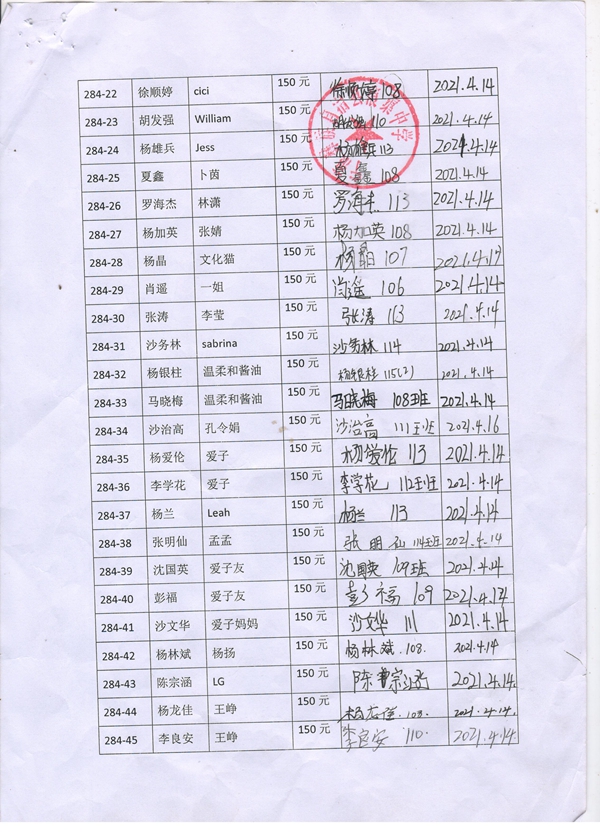 284-22 徐顺婷 cici 150 元 徐顺婷 108 2021.4.14
284-23 胡发强 William 150 元 110 2021.4.14
284-24 杨雄兵 Jess 150 元 杨雄兵 113 2021.4.14
284-25 夏鑫 卜茵 150 元 夏鑫 108 2021.4.14
284-26 罗海杰 林潇 150 元 罗海杰 113 2021.4.14
284-27 杨加英 张婧 150 元 杨加英 108 2021.4.14
284-28 杨晶 文化猫 150 元 杨晶 107 2021.4.17
284-29 肖遥 一姐 150 元 肖遥 106 2021.4.14
284-30 张涛 李莹 150 元 张涛 113 2021.4.14
284-31 沙务林 sabrina 150 元 沙务林 114 2021.4.14
284-32 杨银柱 温柔和酱油 150 元 杨银柱 115 2021.4.14
284-33 马晓梅 温柔和酱油 150 元 马晓梅 108班 2021.4.14
284-34 沙治高 孔令娟 150 元 沙治高 111班 2021.4.16
284-35 杨爱伦 爱子 150 元 杨爱伦 113 2021.4.14
284-36 李学花 爱子 150 元 李学花 112班 2021.4.14
284-37 杨兰 Leah 150 元 杨兰 113 2021.4.14
284-38 张明仙 孟孟 150 元 张明仙 114班 2021.4.14
284-39 沈国英 爱子友 150 元 沈国英 109班 2021.4.14
284-40 彭福 爱子友 150 元 彭福 109 2021.4.14
284-41 沙文华 爱子妈妈 150 元 沙文华 2021.4.14
284-42 杨林斌 杨扬 150 元 杨林斌. 108. 2021.4.14
284-43 陈宗涵 LG 150 元 陈宗涵 2021.4.14.
284-44 杨龙佳 王峥 150 元 杨龙佳. 108. 2021.4.14.
284-45 李良安 王峥 150 元 李良安 110. 2021.4.14